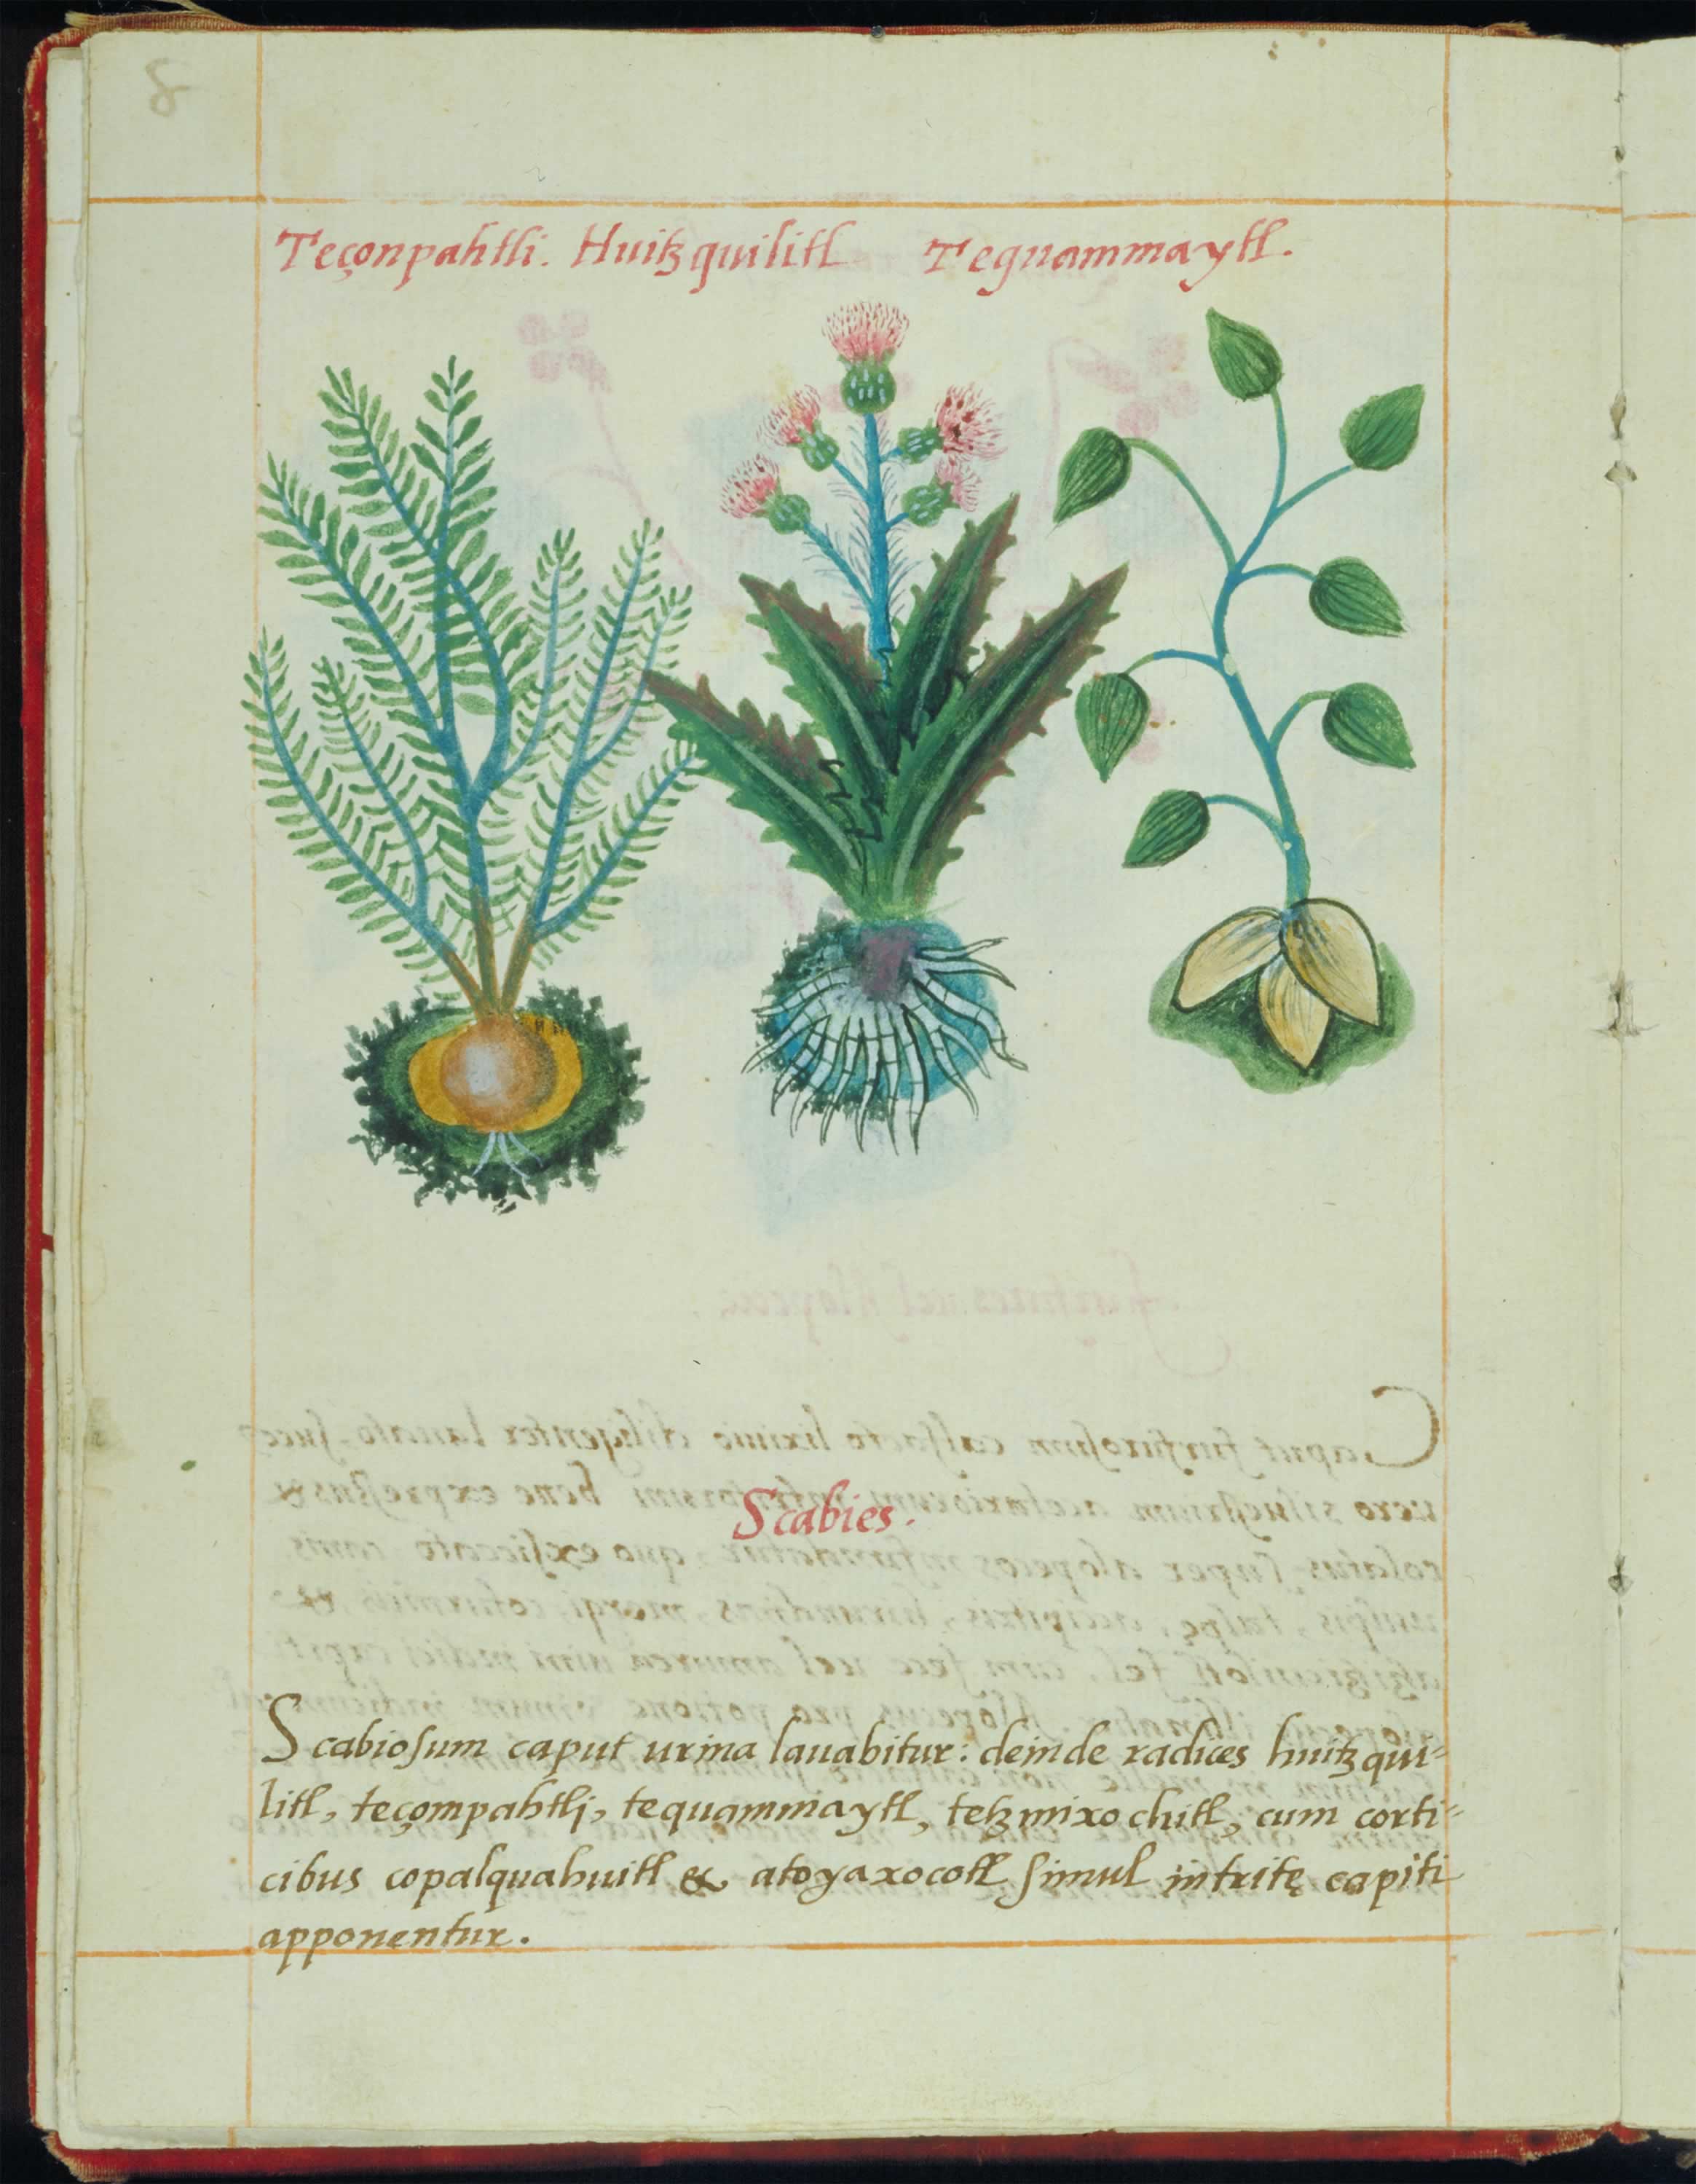 8
Teçonpahtli. Huitzquilitl Tequammaytl.
Scabies.
Scabiosum caput urina lauabitur: deinde radices huitzqui-
litl, teçompahtli, tequammaytl, tetzmixochitl, cum corti-
cibus copalquahuitl & atoyaxocotl simul intritę capiti
apponentur.